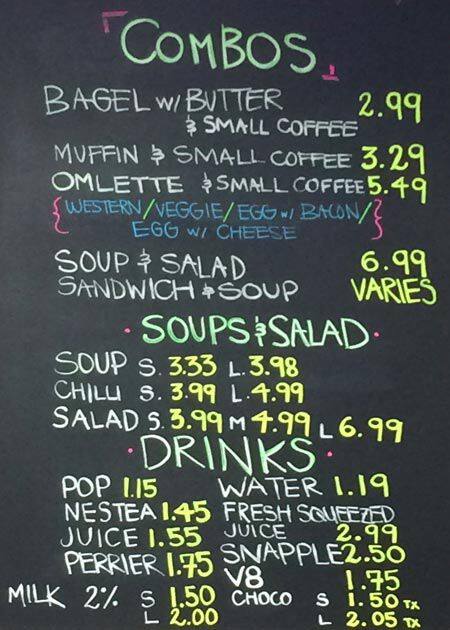 COMBOS
BAGEL w/ BUTTER 2.99
& SMALL COFFEE
MUFFIN & SMALL COFFEE 3.29
OMLETTE & SMALL COFFEE 5.49
{WESTERN/VEGGIE/EGG w/ BACON/
EGG w/ CHEESE}
SOUP & SALAD 6.99
SANDWICH & SOUP VARIES
· SOUPS & SALAD ·
SOUP S. 3.33 L. 3.98
CHILLI S. 3.99 L. 4.99
SALAD S. 3.99 M 4.99 L 6.99
· DRINKS ·
POP 1.15 WATER 1.19
NESTEA 1.45 FRESH SQUEEZED
JUICE 1.55 JUICE 2.99
PERRIER 1.75 SNAPPLE 2.50
V8 1.75
MILK 2% S 1.50 CHOCO S 1.50 TX
L 2.00 L 2.05 TX